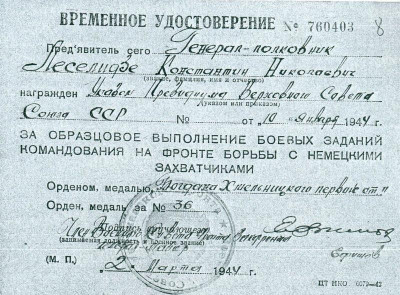 ВРЕМЕННОЕ УДОСТОВЕРЕНИЕ № 760403 8
Пред'явитель сего Генерал-полковник
Леселидзе Константин Николаевич
(звание, фамилия, имя и отчество)
награжден Указом Президиума Верховного Совета
(указом или приказом)
Союза ССР № от 10 января 1944 г.
ЗА ОБРАЗЦОВОЕ ВЫПОЛНЕНИЕ БОЕВЫХ ЗАДАНИЙ
КОМАНДОВАНИЯ НА ФРОНТЕ БОРЬБЫ С НЕМЕЦКИМИ
ЗАХВАТЧИКАМИ
Орденом, медалью, Богдана Хмельницкого первой ст"
Орден, медаль за № 36
Подпись вручающего
Член Военного Совета фронта
(занимаемая должность и военное звание)
(М. П.) 2 марта 1944 г.
ЦТ НКО 6079-42